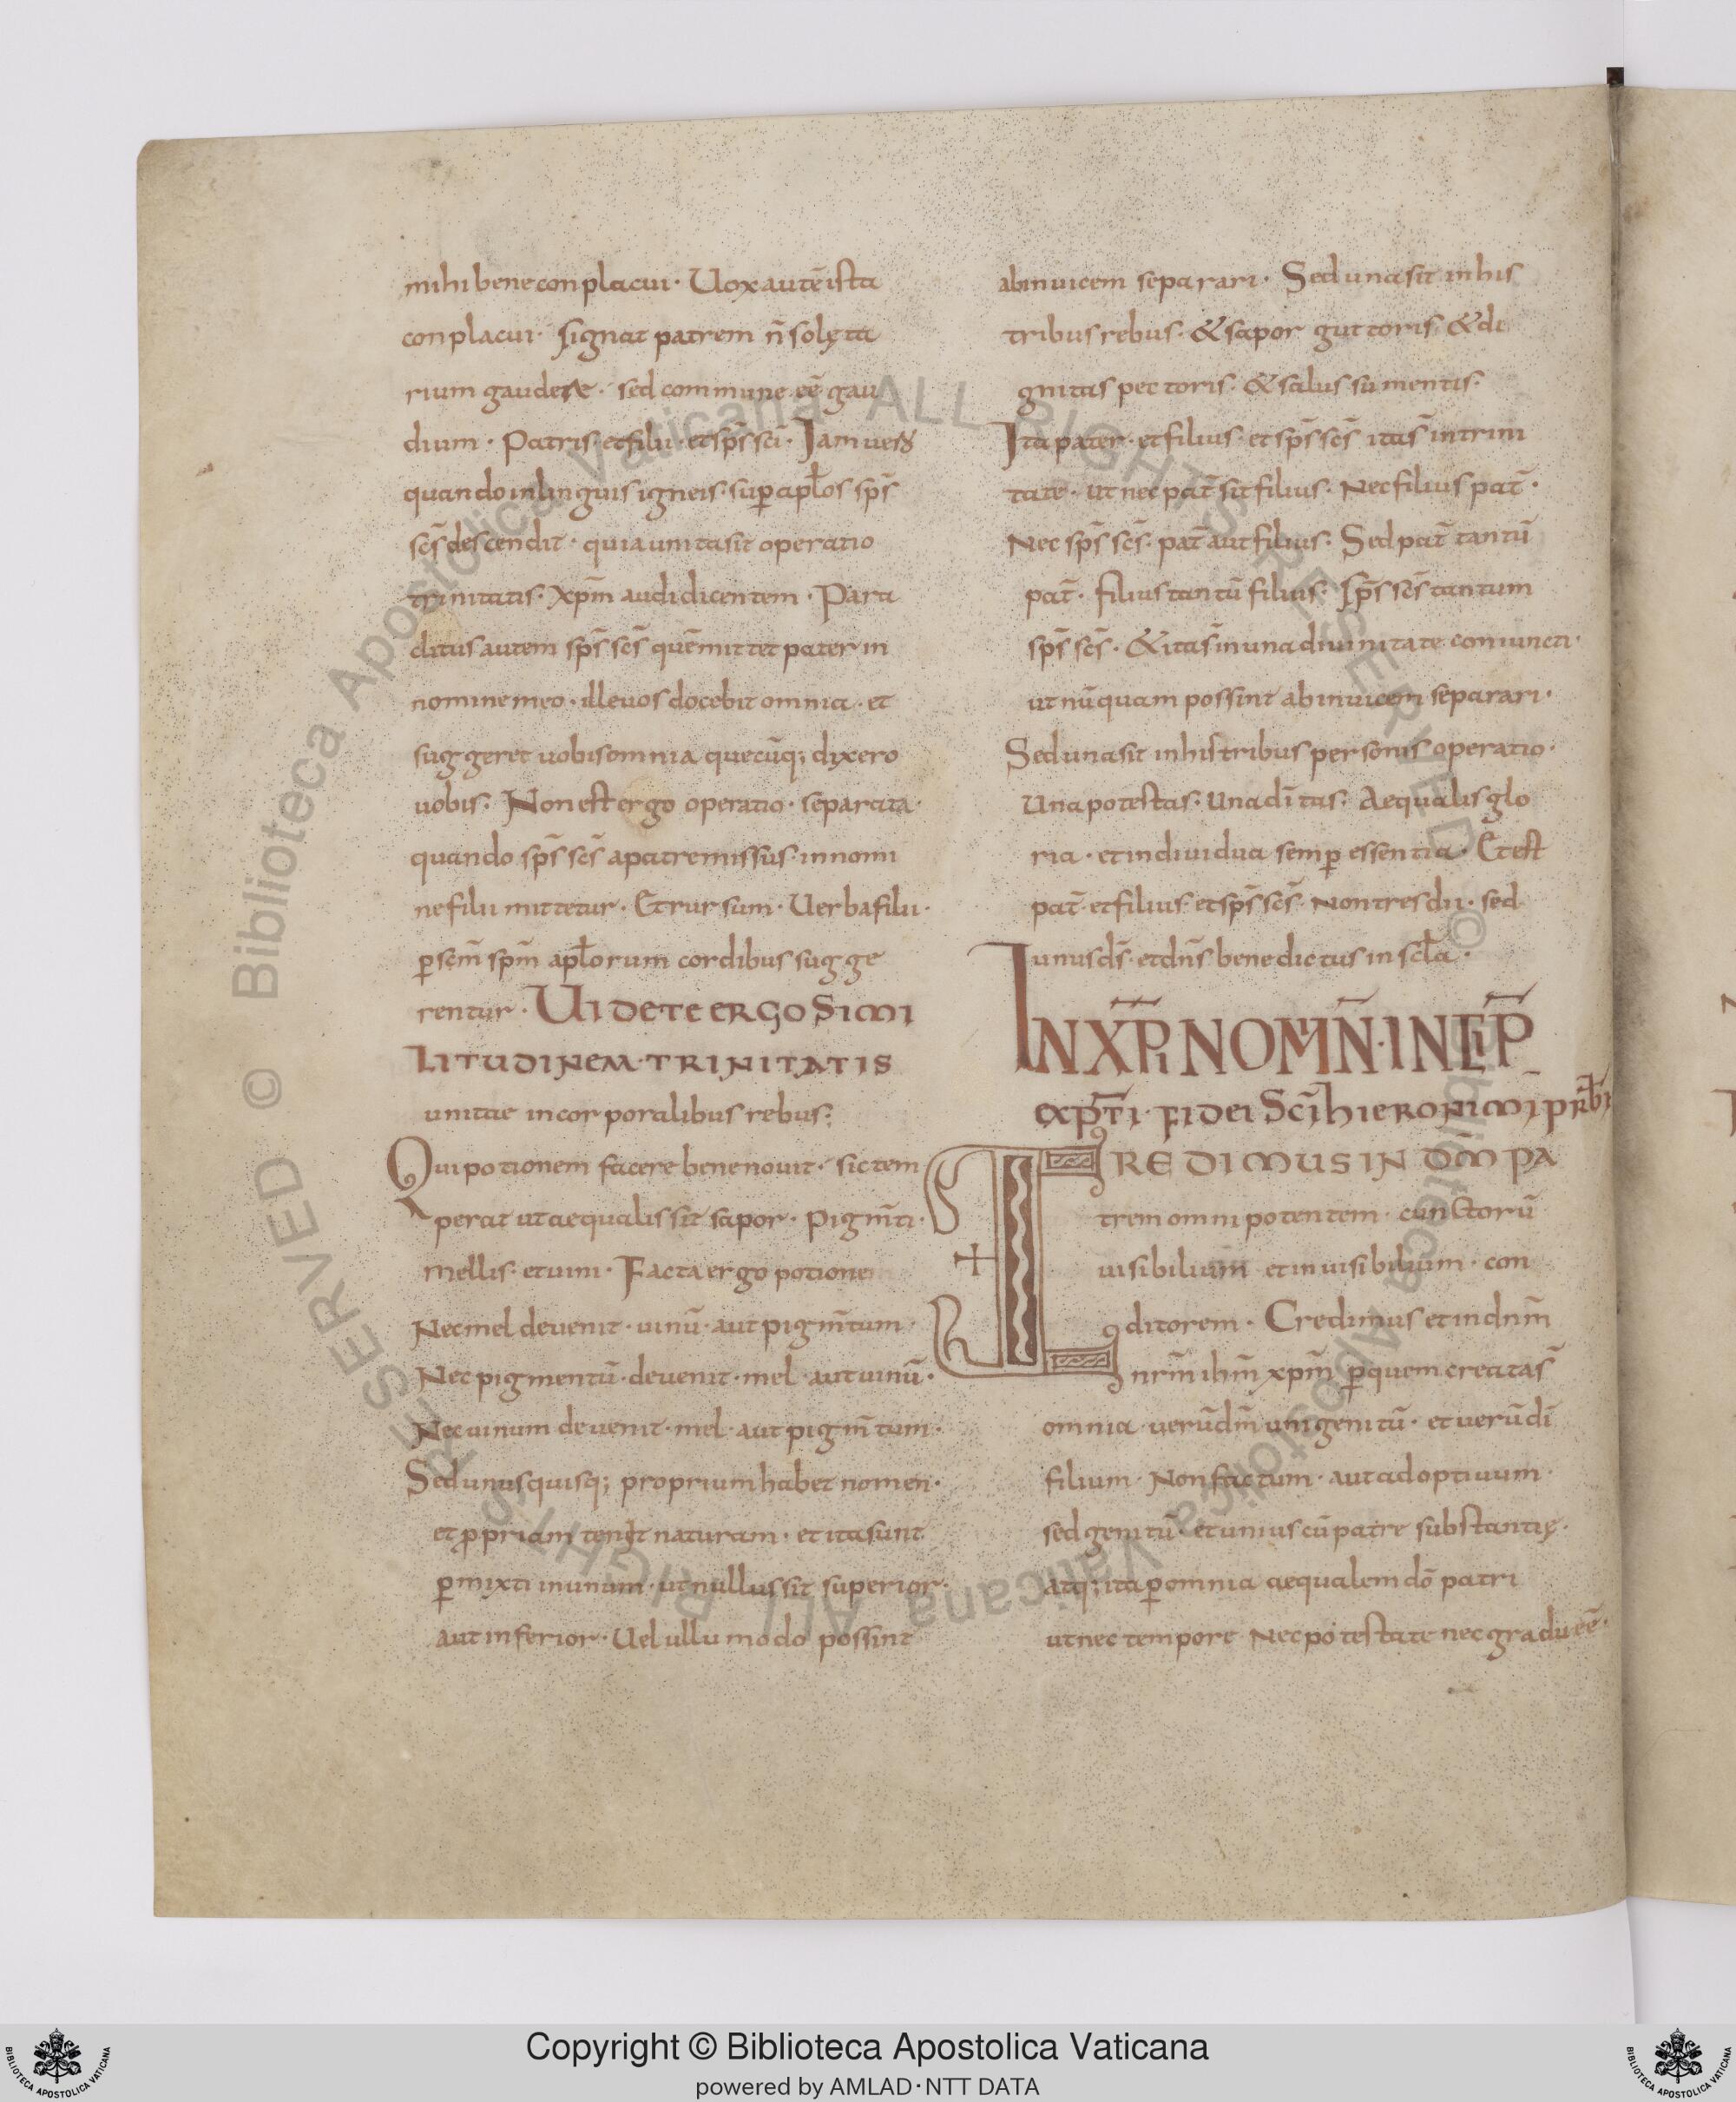 mihi bene conplacui · Uox autē ista
conplacui · signat patrem n̄ solęta
rium gaudere · sed commune eē gau
dium · Patris · et filii · et sp̄s sc̄i · Iam uero
quando in linguis igneis · sup̱ apƚos sp̄s
sc̄s descendit · quia unita sit operatio
trinitatis · xp̄m audi dicentem · Para
clitus autem sp̄s sc̄s quē mittet pater in
nomine meo · ille uos docebit omnia · et
suggeret uobis omnia quecūq; dixero
uobis : Non est ergo operatio · separata ·
quando sp̄s sc̄s a patre missus · in nomi
ne filii mittetur · Et rursum · Uerba filii ·
p̱ sc̄m sp̄m apƚorum cordibus sugge
rentur · UIDETE ERGO SIMI
LITUDINEM · TRINITATIS
unitae in corporalibus rebus :
Qui potionem facere bene nouit · sic tem
perat ut aequalis sit sapor · pigm̄ti ·
mellis · et uini · Facta ergo potione
Nec mel deuenit · uinū · aut pigm̄tum ·
Nec pigmentū · deuenit · mel · aut uinū ·
Nec uinum deuenit · mel · aut pigm̄tum ·
Sed unusquisq; proprium habet nomen ·
et ꝓpriam tenet naturam · et ita sunt
p̱mixti in unum · ut nullus sit superior ·
aut inferior · Uel ullu modo possint
abinuicem separari · Sed una sit in his
tribus rebus · & sapor gutturis & di
gnitas pectoris · & salus sumentis :
Ita pater · et filius · et sp̄s sc̄s ita s̄ in trini
tate · ut nec pat̄ sit filius · Nec filius pat̄ ·
Nec sp̄s sc̄s · pat̄ aut filius : Sed pat̄ tantū
pat̄ · filius tantū filius : Sp̄s sc̄s tantum
sp̄s sc̄s · & ita s̄ in una diuinitate coniuncti ·
ut nūquam possint abinuicem separari ·
Sed una sit in his tribus personis operatio ·
Una potestas · una dītas : Aequalis glo
ria · et indiuidua semp̱ essentia · Et est
pat̄ · et filius · et sp̄s sc̄s · Non tres dii · sed
unus d̄s · et dn̄s benedictus in scƚa ·
IN XP̄I NOMN̄ · INCIP̄
EXP̱T̄I · FIDEI SC̄I HIERONIMI PRB̄I
CREDIMUS IN DM̄ PA
trem omnipotentem · cunctorū
uisibilium et inuisibilium · con
ditorem · Credimus et in dnm̄
nrm̄ ihm̄ xpm̄ p̱ quem creata s̄
omnia · uerū dm̄ unigenitū · et uerū dī
filium · Non factum · aut adoptiuum ·
sed genitū · et unius cū patre substantię ·
atq; ita p̱ omnia aequalem dō patri
ut nec tempore Nec potestate nec gradu eē ·
Copyright © Biblioteca Apostolica Vaticana
powered by AMLAD·NTT DATA
© Biblioteca Apostolica Vaticana ALL RIGHTS RESERVED © Biblioteca Apostolica Vaticana ALL RIGHTS RESERVED
BIBLIOTECA APOSTOLICA VATICANA
BIBLIOTECA APOSTOLICA VATICANA